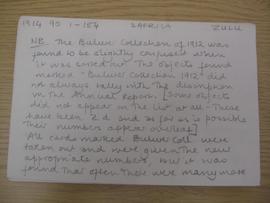 1914 90 1-154 SAFRICA ZULU
NB. The Bulwer Collection of 1912 was
found to be slightly confused when
it was sorted out. The objects found
marked "Bulwer Collection 1912" did
not always tally with the description
in the Annual Report. [Some objects
did not appear in the list at all - These
have been Z'd and as far as is possible
their numbers appear overleaf]
All cards marked Bulwer Coll were
taken out and were given the new
appropriate numbers, but it was
found that often there were many more